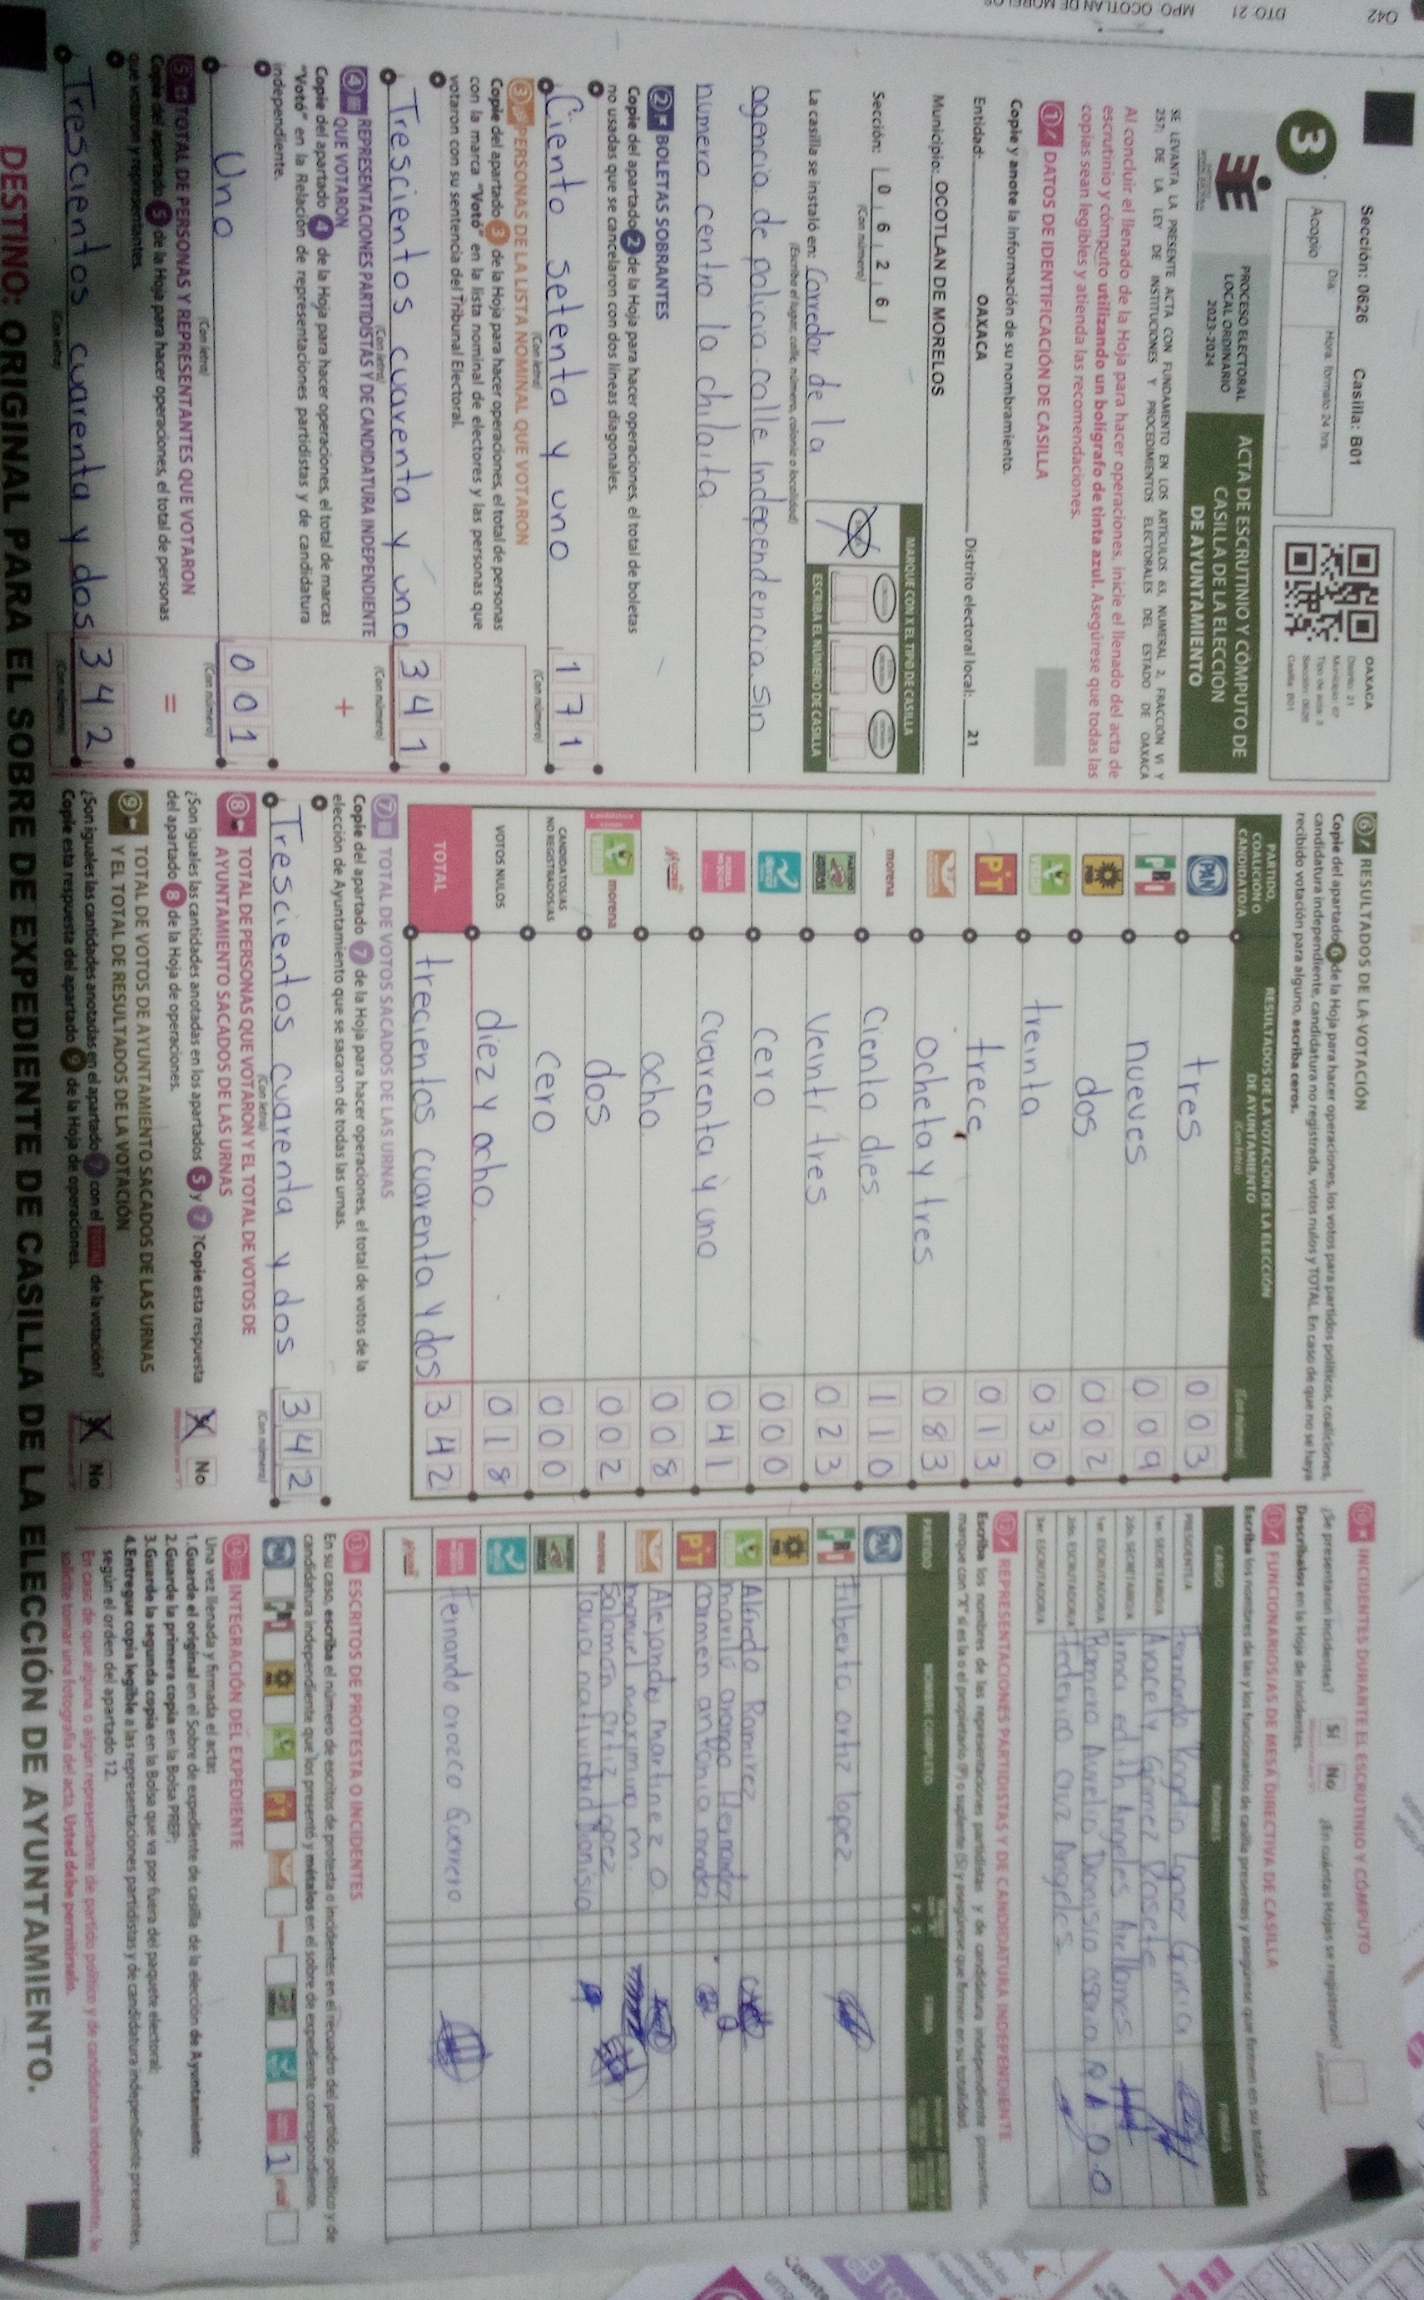 Sección: 0626 Casilla: B01
Día: Hora, formato 24 hrs.
Acopio
3
OAXACA
PROCESO ELECTORAL
LOCAL ORDINARIO
2023-2024
ACTA DE ESCRUTINIO Y CÓMPUTO DE
CASILLA DE LA ELECCIÓN
DE AYUNTAMIENTO
SE LEVANTA LA PRESENTE ACTA CON FUNDAMENTO EN LOS ARTÍCULOS 63, NUMERAL 2, FRACCIÓN VI Y
257; DE LA LEY DE INSTITUCIONES Y PROCEDIMIENTOS ELECTORALES DEL ESTADO DE OAXACA
Al concluir el llenado de la Hoja para hacer operaciones, inicie el llenado del acta de
escrutinio y cómputo utilizando un bolígrafo de tinta azul. Asegúrese que todas las
copias sean legibles y atienda las recomendaciones.
1 DATOS DE IDENTIFICACIÓN DE CASILLA
Copie y anote la información de su nombramiento.
Entidad: OAXACA Distrito electoral local: 21
Municipio: OCOTLAN DE MORELOS
Sección: 0 6 2 6
(Con número)
MARQUE CON X EL TIPO DE CASILLA
ESCRIBA EL NÚMERO DE CASILLA
La casilla se instaló en: Corredor de la
(Escriba el lugar, calle, número, colonia o localidad)
agencia de policia. calle Independencia. sin
numero centro la chilaita.
2 BOLETAS SOBRANTES
Copie del apartado 2 de la Hoja para hacer operaciones, el total de boletas
no usadas que se cancelaron con dos líneas diagonales.
Ciento setenta y uno 1 7 1
(Con letra) (Con número)
3 PERSONAS DE LA LISTA NOMINAL QUE VOTARON
Copie del apartado 3 de la Hoja para hacer operaciones, el total de personas
con la marca "Votó" en la lista nominal de electores y las personas que
votaron con su sentencia del Tribunal Electoral.
Trescientos cuarenta y uno 3 4 1
(Con letra) (Con número)
4 REPRESENTACIONES PARTIDISTAS Y DE CANDIDATURA INDEPENDIENTE
QUE VOTARON
+
Copie del apartado 4 de la Hoja para hacer operaciones, el total de marcas
"Votó" en la Relación de representaciones partidistas y de candidatura
independiente.
Uno 0 0 1
(Con letra) (Con número)
5 TOTAL DE PERSONAS Y REPRESENTANTES QUE VOTARON
=
Copie del apartado 5 de la Hoja para hacer operaciones, el total de personas
que votaron y representantes.
Trescientos cuarenta y dos 3 4 2
(Con letra) (Con número)
6 RESULTADOS DE LA VOTACIÓN
Copie del apartado 6 de la Hoja para hacer operaciones, los votos para partidos políticos, coaliciones,
candidatura independiente, candidatura no registrada, votos nulos y TOTAL. En caso de que no se haya
recibido votación para alguno, escriba ceros.
PARTIDO,
COALICIÓN O
CANDIDATO/A
RESULTADOS DE LA VOTACIÓN DE LA ELECCIÓN
DE AYUNTAMIENTO
(Con letra) (Con número)
PAN tres 0 0 3
PRI nueves 0 0 9
PRD dos 0 0 2
treinta 0 3 0
PT trece 0 1 3
ocheta y tres 0 8 3
morena Ciento dies 1 1 0
Venti tres 0 2 3
cero 0 0 0
cuarenta y uno 0 4 1
ocho 0 0 8
morena dos 0 0 2
CANDIDATOS/AS
NO REGISTRADOS/AS
cero 0 0 0
VOTOS NULOS diez y ocho. 0 1 8
TOTAL trecientos cuarenta y dos 3 4 2
7 TOTAL DE VOTOS SACADOS DE LAS URNAS
Copie del apartado 7 de la Hoja para hacer operaciones, el total de votos de la
elección de Ayuntamiento que se sacaron de todas las urnas.
Trescientos cuarenta y dos 3 4 2
(Con letra) (Con número)
8 TOTAL DE PERSONAS QUE VOTARON Y EL TOTAL DE VOTOS DE
AYUNTAMIENTO SACADOS DE LAS URNAS
¿Son iguales las cantidades anotadas en los apartados 5 y 7? Copie esta respuesta
del apartado 8 de la Hoja de operaciones.
No
9 TOTAL DE VOTOS DE AYUNTAMIENTO SACADOS DE LAS URNAS
Y EL TOTAL DE RESULTADOS DE LA VOTACIÓN
¿Son iguales las cantidades anotadas en el apartado 7 con el TOTAL de la votación?
Copie esta respuesta del apartado 9 de la Hoja de operaciones.
No
10 INCIDENTES DURANTE EL ESCRUTINIO Y CÓMPUTO
¿Se presentaron incidentes? Sí No ¿En cuántas Hojas se registraron?
Descríbalos en la Hoja de incidentes.
11 FUNCIONARIOS/AS DE MESA DIRECTIVA DE CASILLA
Escriba los nombres de las y los funcionarios de casilla presentes y asegúrese que firmen en su totalidad.
CARGO NOMBRES FIRMAS
PRESIDENTE/A Fernando Rogelio Lopez Garcia
1er. SECRETARIO/A Aracely Gómez Dosete
2do. SECRETARIO/A Irma edith Angeles Arellanes
1er. ESCRUTADOR/A Romero Aurelio Dionisio
2do. ESCRUTADOR/A Federico cruz Angeles
3er. ESCRUTADOR/A
12 REPRESENTACIONES PARTIDISTAS Y DE CANDIDATURA INDEPENDIENTE
Escriba los nombres de las representaciones partidistas y de candidatura independiente presentes,
marque con "X" si es la o el propietario (P) o suplente (S) y asegúrese que firmen en su totalidad.
PARTIDO NOMBRE COMPLETO P S FIRMA
PAN
PRI Filberto ortiz lopez
Alfredo Ramirez
PT carmen antonia
Alejandro martinez O
manuel maximino m.
morena Salomon ortiz lopez
natividad Dionisio
Hernando orozco Guerrero
13 ESCRITOS DE PROTESTA O INCIDENTES
En su caso, escriba el número de escritos de protesta o incidentes en el recuadro del partido político y de
candidatura independiente que los presentó y métalos en el sobre de expediente correspondiente.
1
14 INTEGRACIÓN DEL EXPEDIENTE
Una vez llenada y firmada el acta:
1. Guarde el original en el Sobre de expediente de casilla de la elección de Ayuntamiento;
2. Guarde la primera copia en la Bolsa PREP;
3. Guarde la segunda copia en la Bolsa que va por fuera del paquete electoral;
4. Entregue copia legible a las representaciones partidistas y de candidatura independiente presentes,
según el orden del apartado 12.
En caso de que alguna o algún representante de partido político y de candidatura independiente, le
solicite tomar una fotografía del acta, Usted debe permitírselo.
DESTINO: ORIGINAL PARA EL SOBRE DE EXPEDIENTE DE CASILLA DE LA ELECCIÓN DE AYUNTAMIENTO.
042 DTO 21 MPO OCOTLAN DE MORELOS